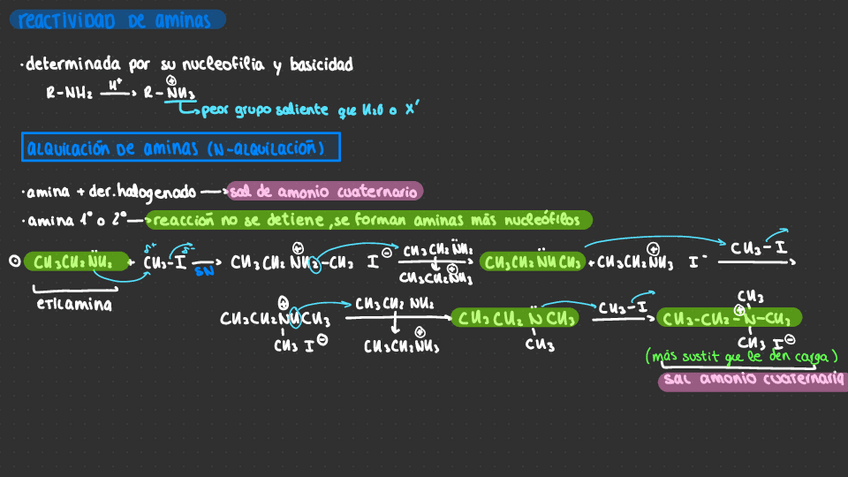 reactividad de aminas
· determinada por su nucleofilia y basicidad
R-NH₂ —H⁺→ R-NH₃⊕
↳ peor grupo saliente que H₂O o X⁻
alquilación de aminas (N-alquilación)
· amina + der. halogenado → sal de amonio cuaternario
· amina 1° o 2° → reacción no se detiene, se forman aminas más nucleófilos
CH₃CH₂NH₂ + CH₃-I (δ+ δ-) —SN→ CH₃CH₂NH₂-CH₃ ⊕ I⊖ —CH₃CH₂NH₂ / CH₃CH₂NH₃⊕→ CH₃CH₂NHCH₃ + CH₃CH₂NH₃⊕ I⁻ —CH₃-I→
etilamina
CH₃CH₂NHCH₃ ⊕ —CH₃CH₂NH₂→ CH₃CH₂NCH₃ —CH₃-I→ CH₃-CH₂-N⊕-CH₃ CH₃
CH₃ I⊖ CH₃CH₂NH₃⊕ CH₃ CH₃ I⊖
(más sustit que le den carga)
sal amonio cuaternaria